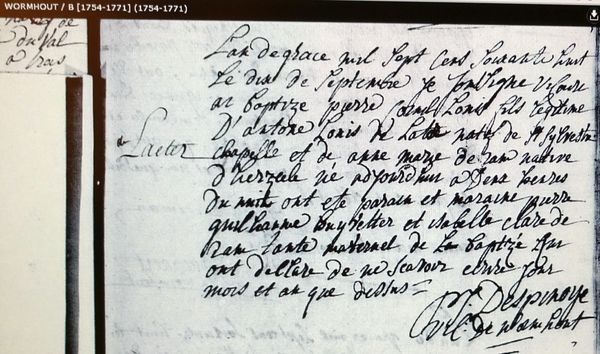 WORMHOUT / B [1754-1771] (1754-1771)
du val
a
L'an de grace mil sept cens soixante huit
Le dix de septembre je soussigne vicaire
ai baptize pierre cornil Louis fils legitime
D'antone Louis de natif de St Sylvestre
chapelle et de anne marie de ram native
d'herzeele ne adjourdhui a Deux heures
Du nuit ont ete parain et maraine pierre
guilliaume huyvetter et isabelle clare de
ram tante maternel de Le baptize qui
ont declare de ne scavoir ecrire jour
mois et an que dessus =
Despinoye
vic. de wormhout